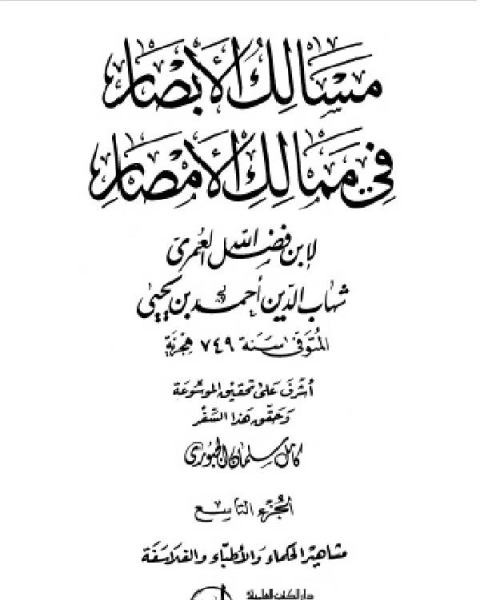 مَسَالِكُ الأَبْصَارِ
فِي مَمَالِكِ الأَمْصَارِ
لابن فضل الله العُمري
شهاب الدّين أحمد بن يحيى
المتوفى سنة ٧٤٩ هجرية
أشرف على تحقيق الموسوعة
وحقق هذا السّفر
كامل سلمان الجبوري
الجزء التاسع
مشاهير الحكماء والأطباء والفلاسفة
دار الكتب العلمية